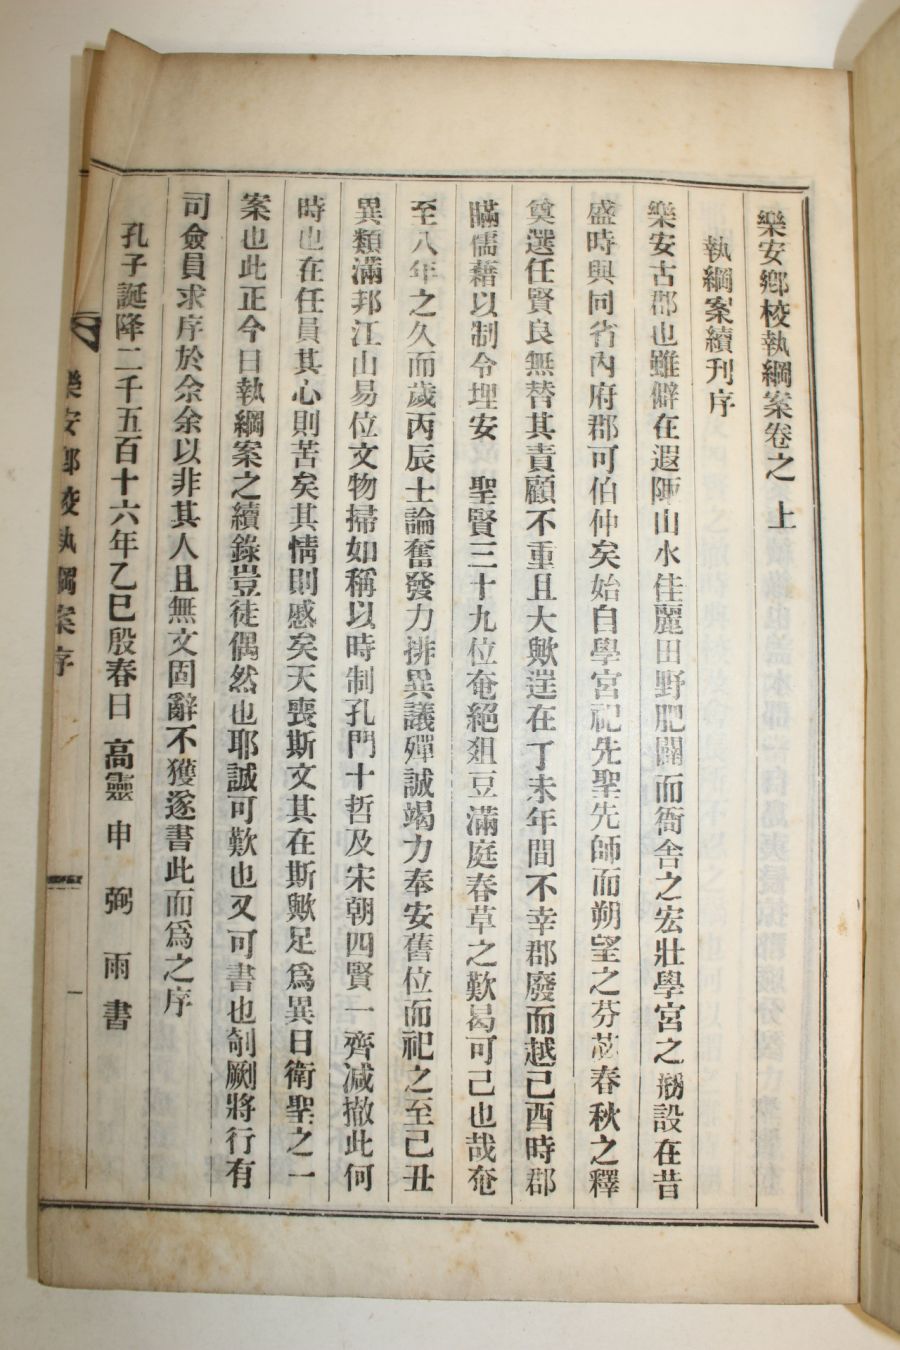 樂安鄕校執綱案卷之 上
執綱案續刊序
樂安古郡也雖僻在遐陬山水佳麗田野肥闢而衙舍之宏壯學宮之刱設在昔
盛時與同省內府郡可伯仲矣始自學宮祀先聖先師而朔望之芬苾春秋之釋
奠選任賢良無替其責顧不重且大歟逞在丁未年間不幸郡廢而越己酉時郡
瞞儒藉以制令埋安 聖賢三十九位奄絕俎豆滿庭春草之歎曷可已也哉奄
至八年之久而歲丙辰士論奮發力排異議殫誠竭力奉安舊位而祀之至己丑
異類滿邦江山易位文物掃如稱以時制孔門十哲及宋朝四賢一齊减撤此何
時也在任員其心則苦矣其情則慼矣天喪斯文其在斯歟足爲異日衛聖之一
案也此正今日執綱案之續錄豈徒偶然也耶誠可歎也又可書也剞劂將行有
司僉員求序於余余以非其人且無文固辭不獲遂書此而爲之序
孔子誕降二千五百十六年乙巳殷春日 高靈 申 弼 雨 書
樂安鄕校執綱案序
一